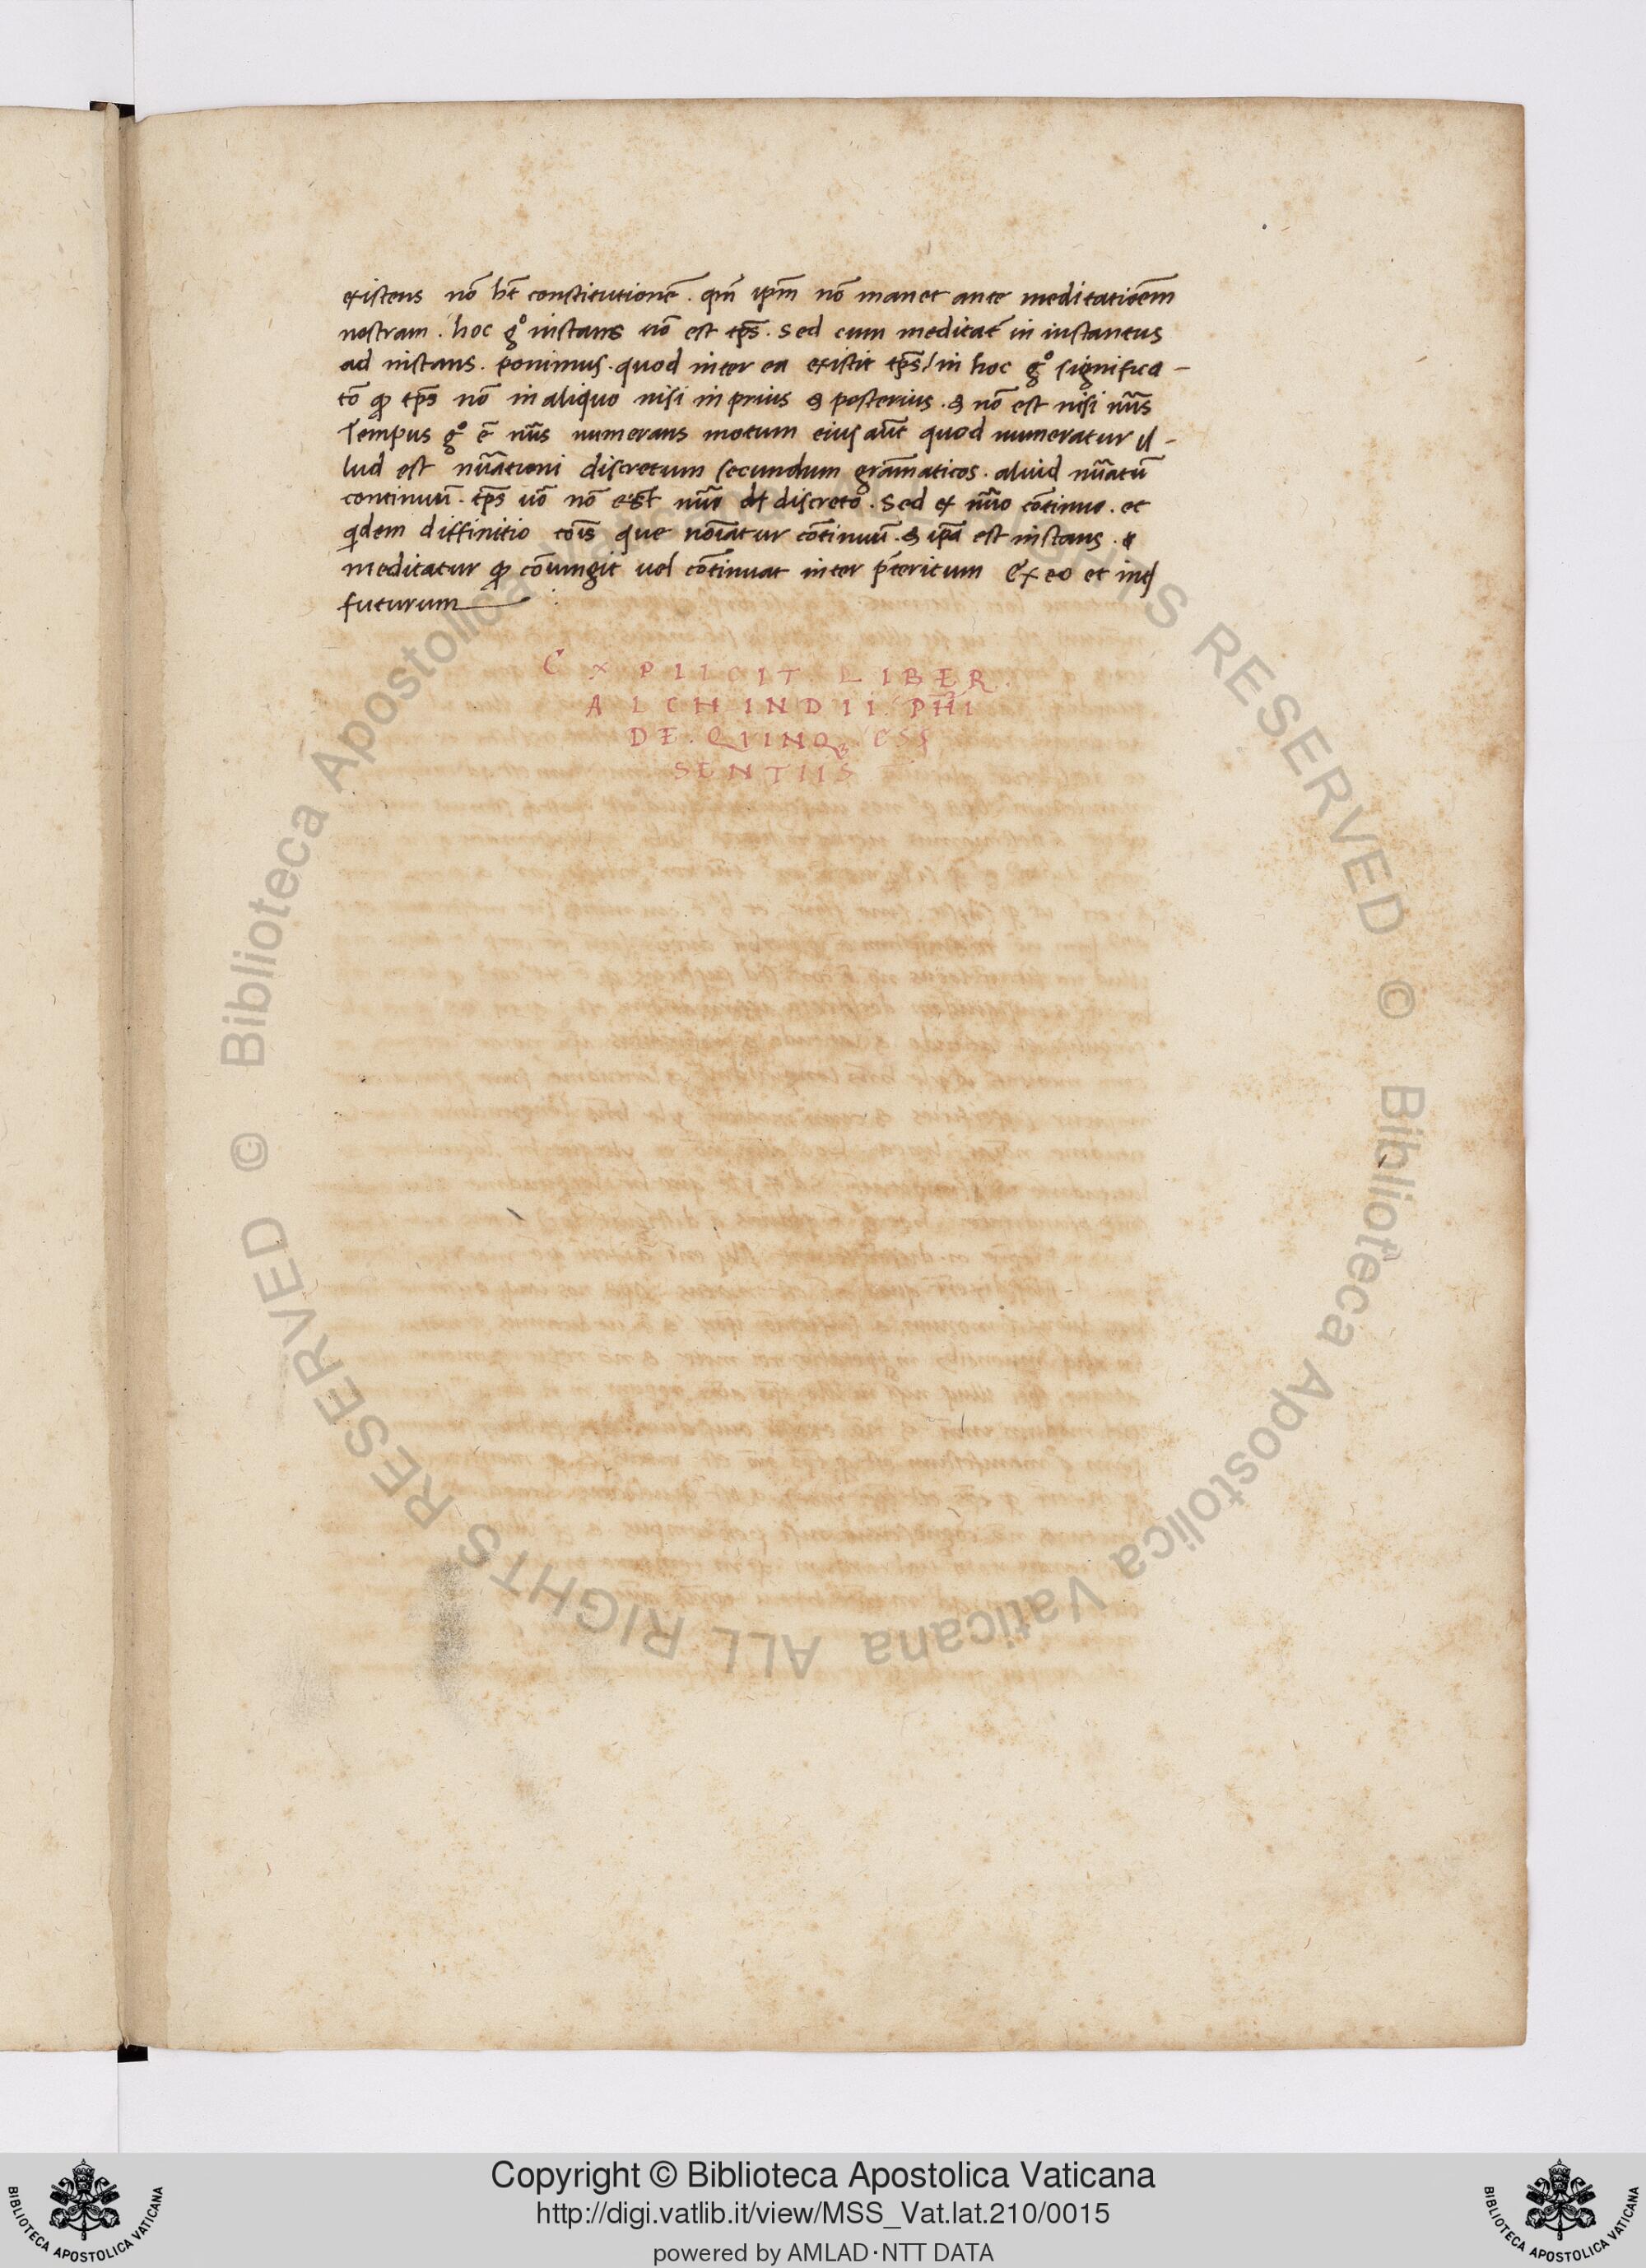 existens nō ht̄ constitutionē. qm̄ ip̄m nō manet ante meditatiōem
nostram. hoc gͦ instans nō est tp̄s. sed cum meditat᷑ in instantus
ad instans. ponimus. quod inter ea existit tp̄s / in hoc gͦ significa-
tō ꝙ tp̄s nō in aliquo nisi in prius & posterius. & nō est nisi nūs
Tempus gͦ ē nūs numerans motum eius aūt quod numeratur il-
lud est nūationi discretum secundum grāmaticos. aliud nūatū
continuū. tp̄s uō nō est nūo discreto. sed ex nūo cōtinuo. et
qdem diffinitio tōis que nōiatur cōtinuū. & ip̄a est instans. &
meditatur ꝙ cōiungit uel cōtinuat inter p̄teritum ex eo et int
futurum
EXPLICIT LIBER.
ALCHINDII. PHĪ
DE. QUINQꝫ ESS
SENTIIS
© Biblioteca Apostolica Vaticana ALL RIGHTS RESERVED © Biblioteca Apostolica Vaticana ALL RIGHTS RESERVED
Copyright © Biblioteca Apostolica Vaticana
http://digi.vatlib.it/view/MSS_Vat.lat.210/0015
powered by AMLAD·NTT DATA
BIBLIOTECA APOSTOLICA VATICANA
BIBLIOTECA APOSTOLICA VATICANA